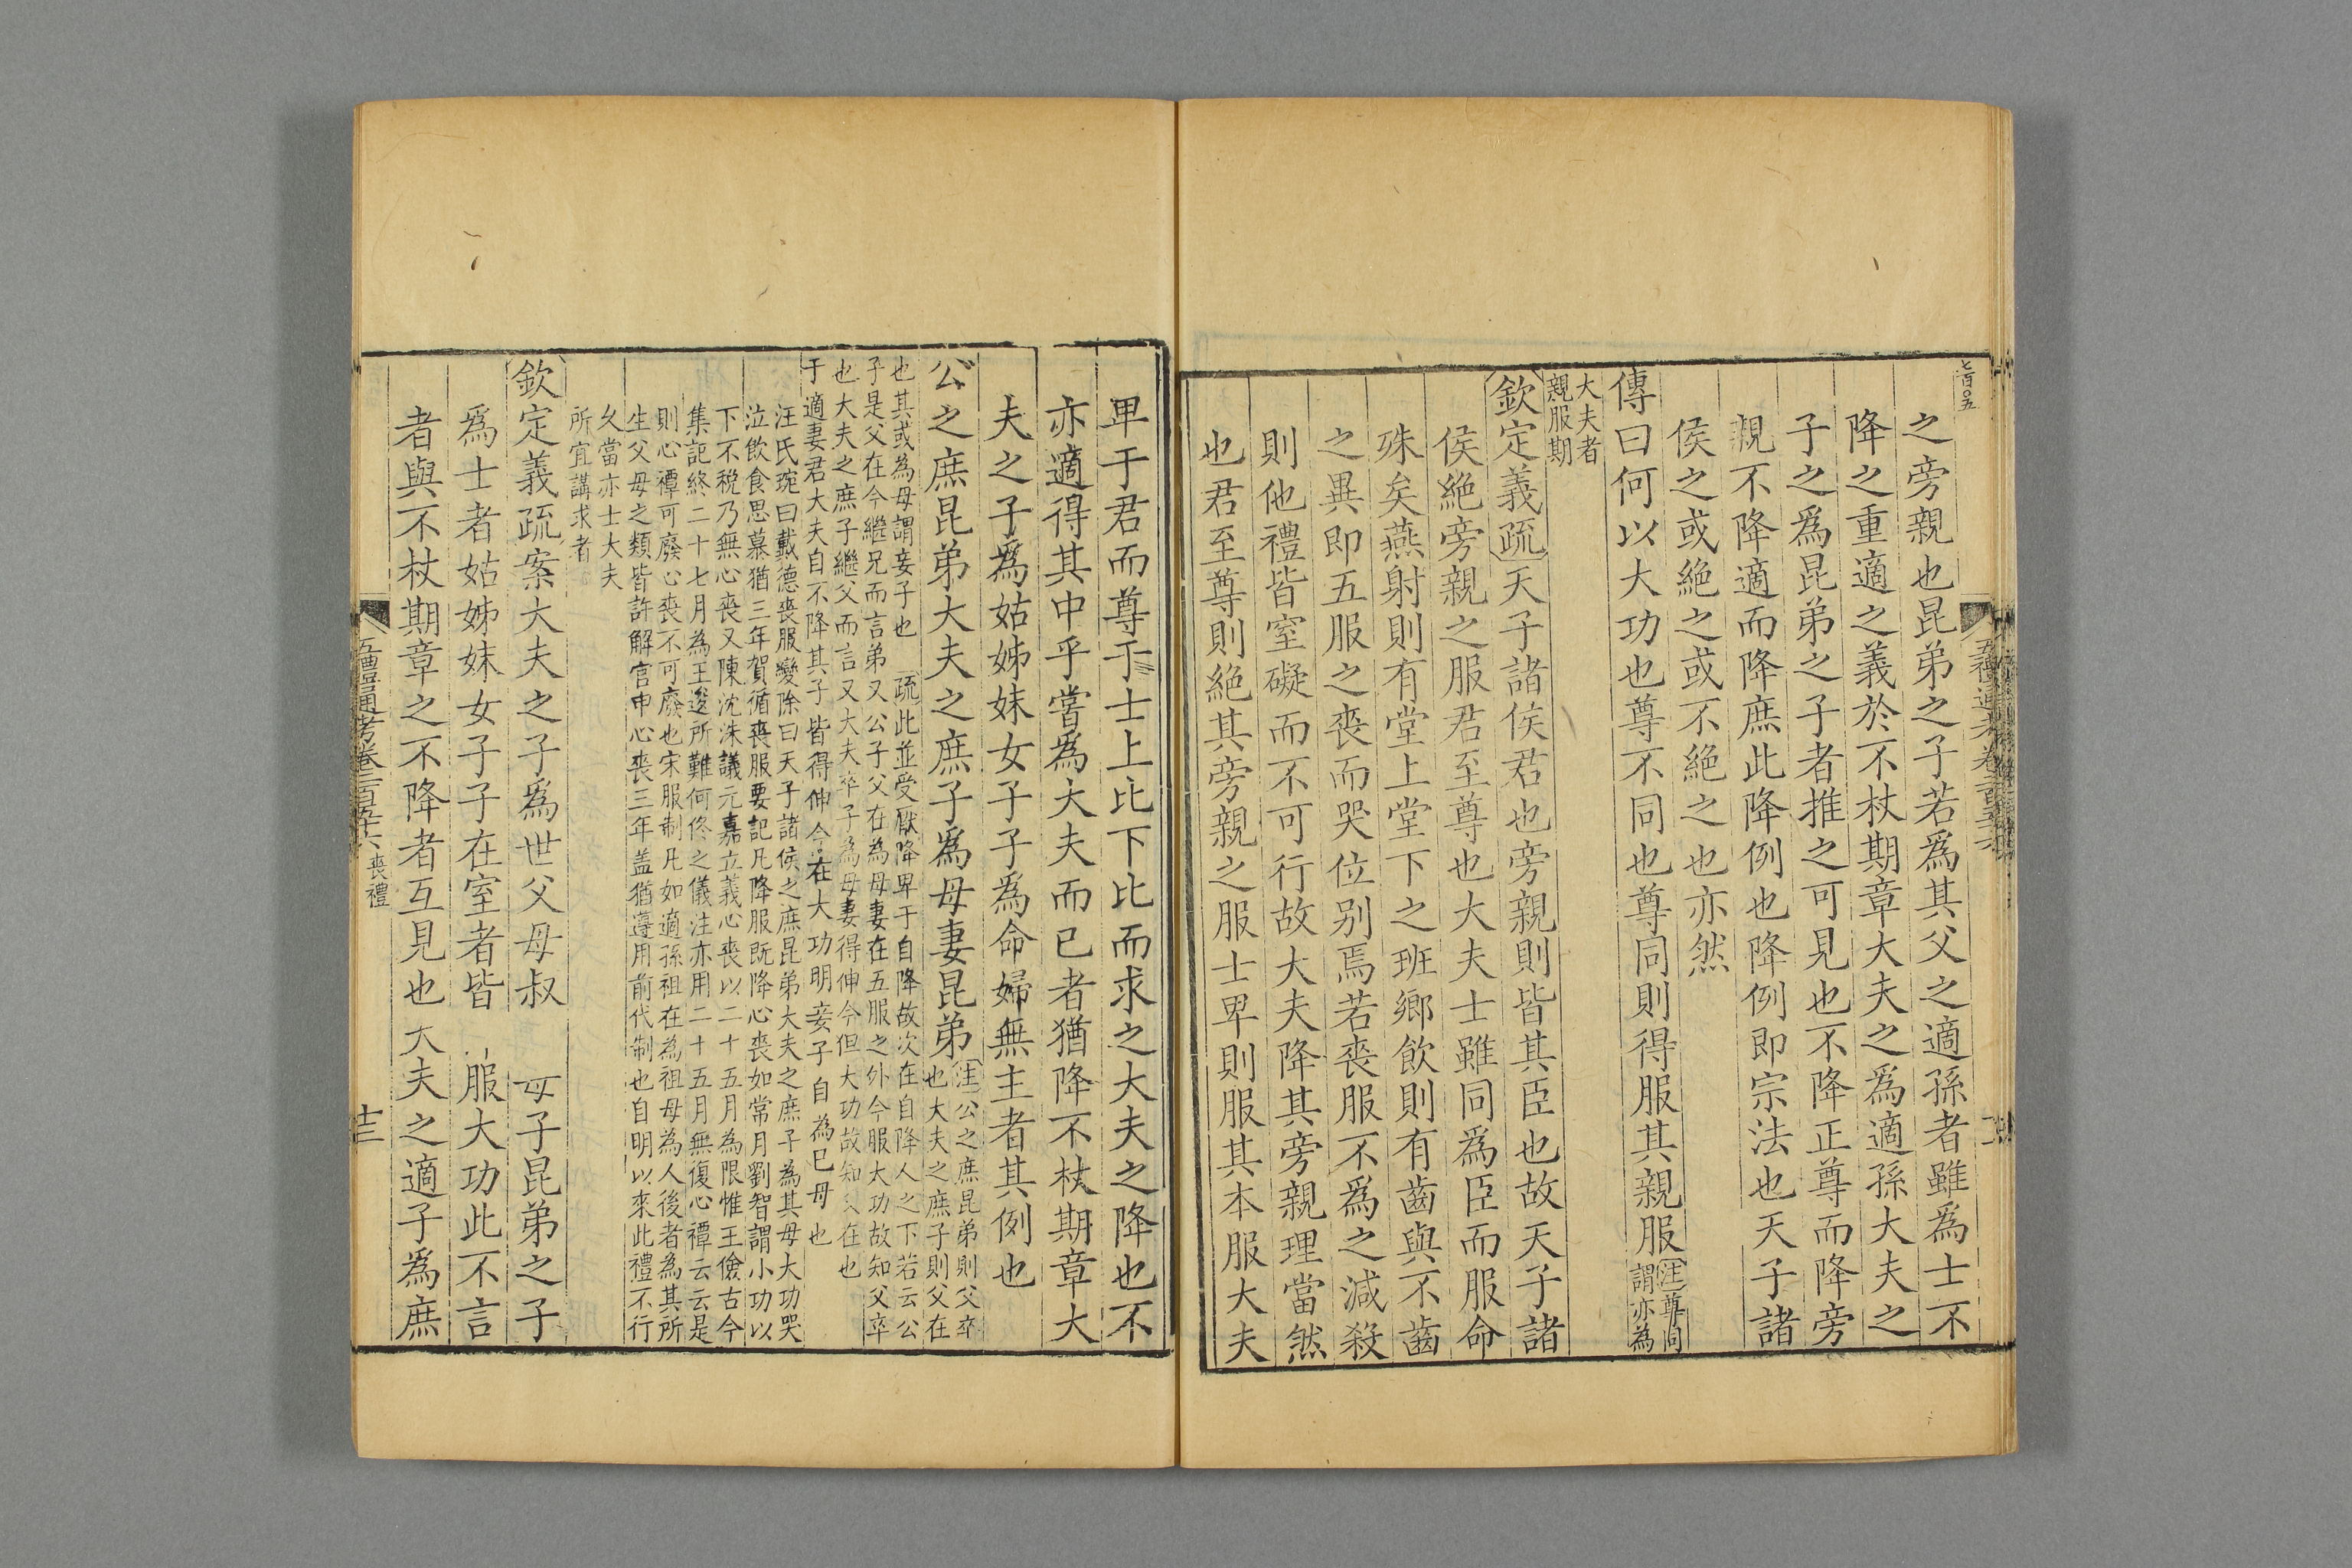 七百〇五
之旁親也昆弟之子若爲其父之適孫者雖爲士不
降之重適之義於不杖期章大夫之爲適孫大夫之
子之爲昆弟之子者推之可見也不降正尊而降旁
親不降適而降庶此降例也降例即宗法也天子諸
侯之或絕之或不絕之也亦然
傳曰何以大功也尊不同也尊同則得服其親服
注尊同
謂亦為
大夫者
親服期
欽定義疏天子諸侯君也旁親則皆其臣也故天子諸
侯絕旁親之服君至尊也大夫士雖同爲臣而服命
殊矣燕射則有堂上堂下之班鄉飲則有齒與不齒
之異即五服之喪而哭位别焉若喪服不爲之減殺
則他禮皆窒礙而不可行故大夫降其旁親理當然
也君至尊則絕其旁親之服士卑則服其本服大夫
卑于君而尊于士上比下比而求之大夫之降也不
亦適得其中乎嘗爲大夫而已者猶降不杖期章大
夫之子爲姑姊妹女子子爲命婦無主者其例也
公之庶昆弟大夫之庶子爲母妻昆弟
注公之庶昆弟則父卒
也大夫之庶子則父在
也其或為母謂妾子也　疏此並受厭降卑于自降故次在自降人之下若云公
子是父在今繼兄而言弟又公子父在為母妻在五服之外今服大功故知父卒
也大夫之庶子繼父而言又大夫卒子為母妻得伸今但大功故知父在也
于適妻君大夫自不降其子皆得伸今在大功明妾子自為已母也
汪氏琬曰戴德喪服變除曰天子諸侯之庶昆弟大夫之庶子為其母大功哭
泣飲食思慕猶三年賀循喪服要記凡降服既降心喪如常月劉智謂小功以
下不稅乃無心喪又陳沈洙議元嘉立義心喪以二十五月為限惟王儉古今
集記終二十七月為王逡所難何佟之儀注亦用二十五月無復心禫云云是
則心禫可廢心喪不可廢也宋服制凡如適孫祖在為祖母為人後者為其所
生父母之類皆許解官申心喪三年盖猶遵用前代制也自明以來此禮不行
久當亦士大夫
所宜講求者
欽定義疏案大夫之子爲世父母叔　母子昆弟之子
爲士者姑姊妹女子子在室者皆　服大功此不言
者與不杖期章之不降者互見也大夫之適子爲庶
五禮通考卷二百五十六　喪禮
十三